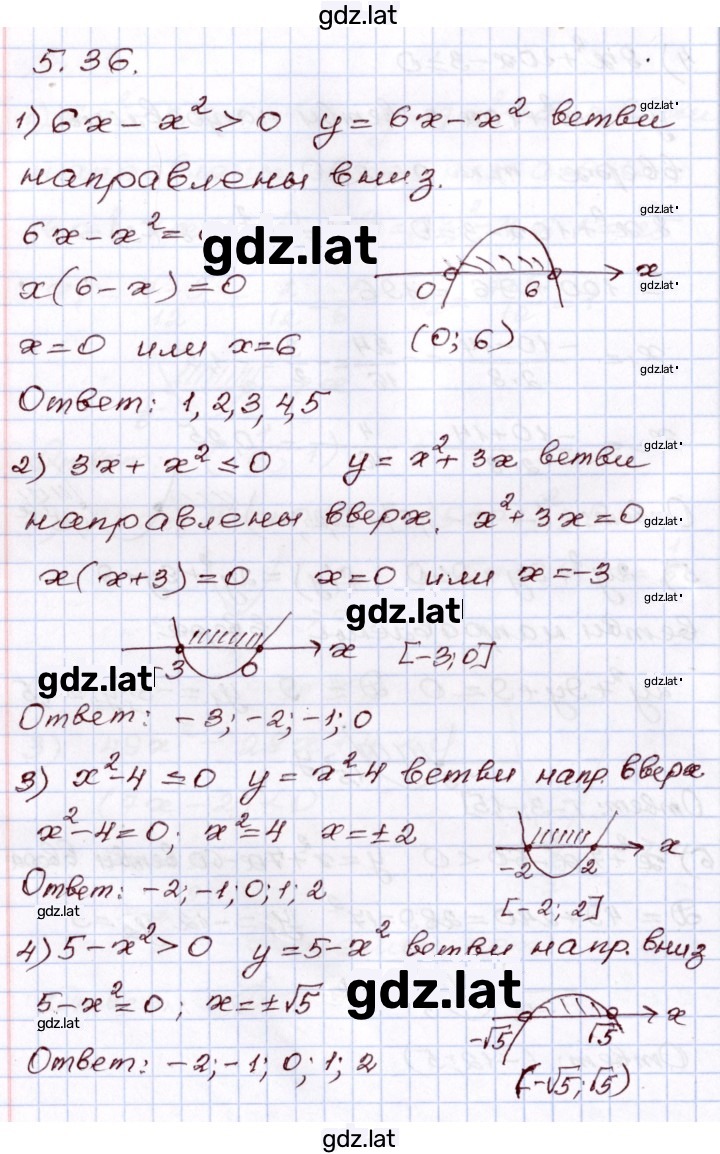 gdz.lat
5.36.
1) 6x - x² > 0 y = 6x - x² ветви gdz.lat
направлены вниз.
6x - x² = gdz.lat gdz.lat
x(6 - x) = 0 0 6 x gdz.lat
x = 0 или x = 6 (0; 6)
gdz.lat
Ответ: 1, 2, 3, 4, 5
2) 3x + x² ≤ 0 y = x² + 3x ветви gdz.lat
направлены вверх. x² + 3x = 0 gdz.lat
x(x + 3) = 0 x = 0 или x = -3
gdz.lat gdz.lat
-3 0 x [-3; 0]
gdz.lat gdz.lat
Ответ: -3; -2; -1; 0
3) x² - 4 ≤ 0 y = x² - 4 ветви напр. вверх
x² - 4 = 0; x² = 4 x = ±2
-2 2 x
Ответ: -2; -1; 0; 1; 2
gdz.lat [-2; 2]
4) 5 - x² > 0 y = 5 - x² ветви напр. вниз
5 - x² = 0; x = ±√5 gdz.lat
gdz.lat -√5 √5 x
Ответ: -2; -1; 0; 1; 2
(-√5; √5)
gdz.lat